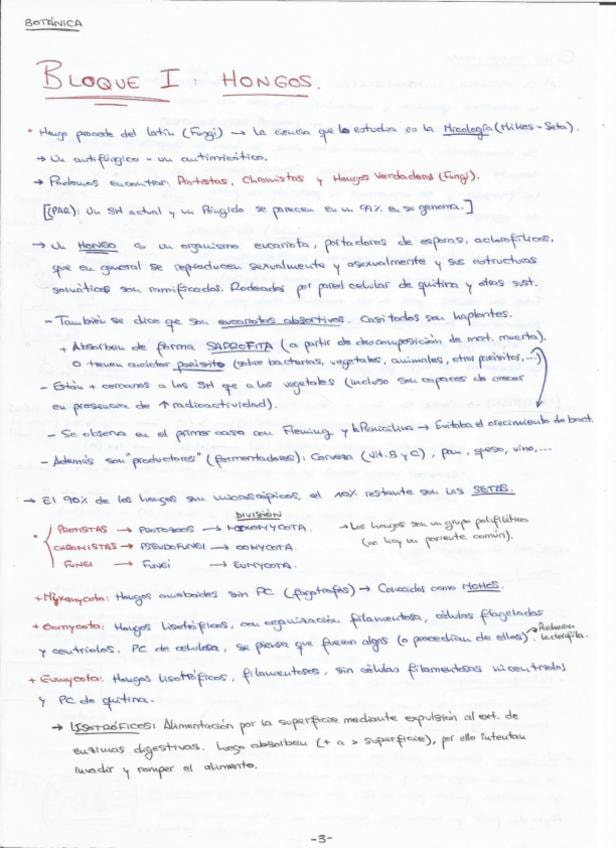 BOTÁNICA
BLOQUE I: HONGOS.
* Hongo procede del latín (Fungi) → La ciencia que lo estudia es la Micología (Mikes - Seta).
→ Un antifúngico = un antimicótico.
→ Podemos encontrar Protistas, Chromistas y Hongos Verdaderos (Fungi).
[(PAR): Un SH actual y un Fúngido se parecen en un 99% en su genoma.]
→ Un HONGO es un organismo eucariota, portadores de esporas, aclorofílicos,
que en general se reproducen sexualmente y asexualmente y sus estructuras
somáticas son ramificadas. Rodeados por pared celular de quitina y otras sust.
- También se dice que son eucariotas absortivos. Casi todos son haplontes.
+ Absorben de forma SAPROFITA (a partir de descomposición de mat. muerta).
O tienen carácter parásito (sobre bacterias, vegetales, animales, otros parásitos,...)
- Están + cercanos a los SH que a los vegetales (incluso son capaces de crecer
en presencia de ↑ radioactividad).
- Se observa en el primer caso con Fleming y la Penicilina → Evitaba el crecimiento de bact.
- Además son "productores" (fermentadores): Cerveza (Vit. B y C), pan, queso, vino,...
→ El 90% de los hongos son microscópicos, el 10% restante son las SETAS.
DIVISIÓN
* PROTISTAS → PROTOZOOS → MIXOMYCOTA. → Los hongos son un grupo polifilético
CHROMISTAS → PSEUDOFUNGI → OOMYCOTA. (no hay un pariente común).
FUNGI → FUNGI → EUMYCOTA.
+ Myxomycota: Hongos ameboides sin PC (fagótrofos) → Conocidos como MOHOS.
+ Oomycota: Hongos lisotróficos, con organización filamentosa, células flageladas
y centriolos. PC de celulosa, se piensa que fueron algas (o procedían de ellas) → Perdieron la clorofila.
+ Eumycota: Hongos lisotróficos, filamentosos, sin células filamentosas ni centriolos
y PC de quitina.
→ LISOTRÓFICOS: Alimentación por la superficie mediante expulsión al ext. de
enzimas digestivas. Luego absorben (+ a > superficie), por ello intentan
invadir y romper el alimento.
-3-